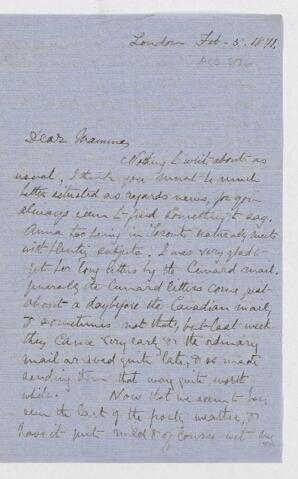 London Feb - 5. 1871.
Dear Mamma
Nothing to write about as
usual, I think you must be much
better situated as regards news, for you
always seem to find something to say.
Anna too being in Toronto naturally meets
with plenty subjects. I was very glad to
get for long letters by the Cunard mail.
generally the Cunard letters come just
about a day before the Canadian mail,
& sometimes not that, but last week
they came very early & the ordinary
mail arrived quite late, & so made
sending them that way quite worth
while. Now that we seem to have
seen the last of the frosty weather, &
have it quite mild & of course wet